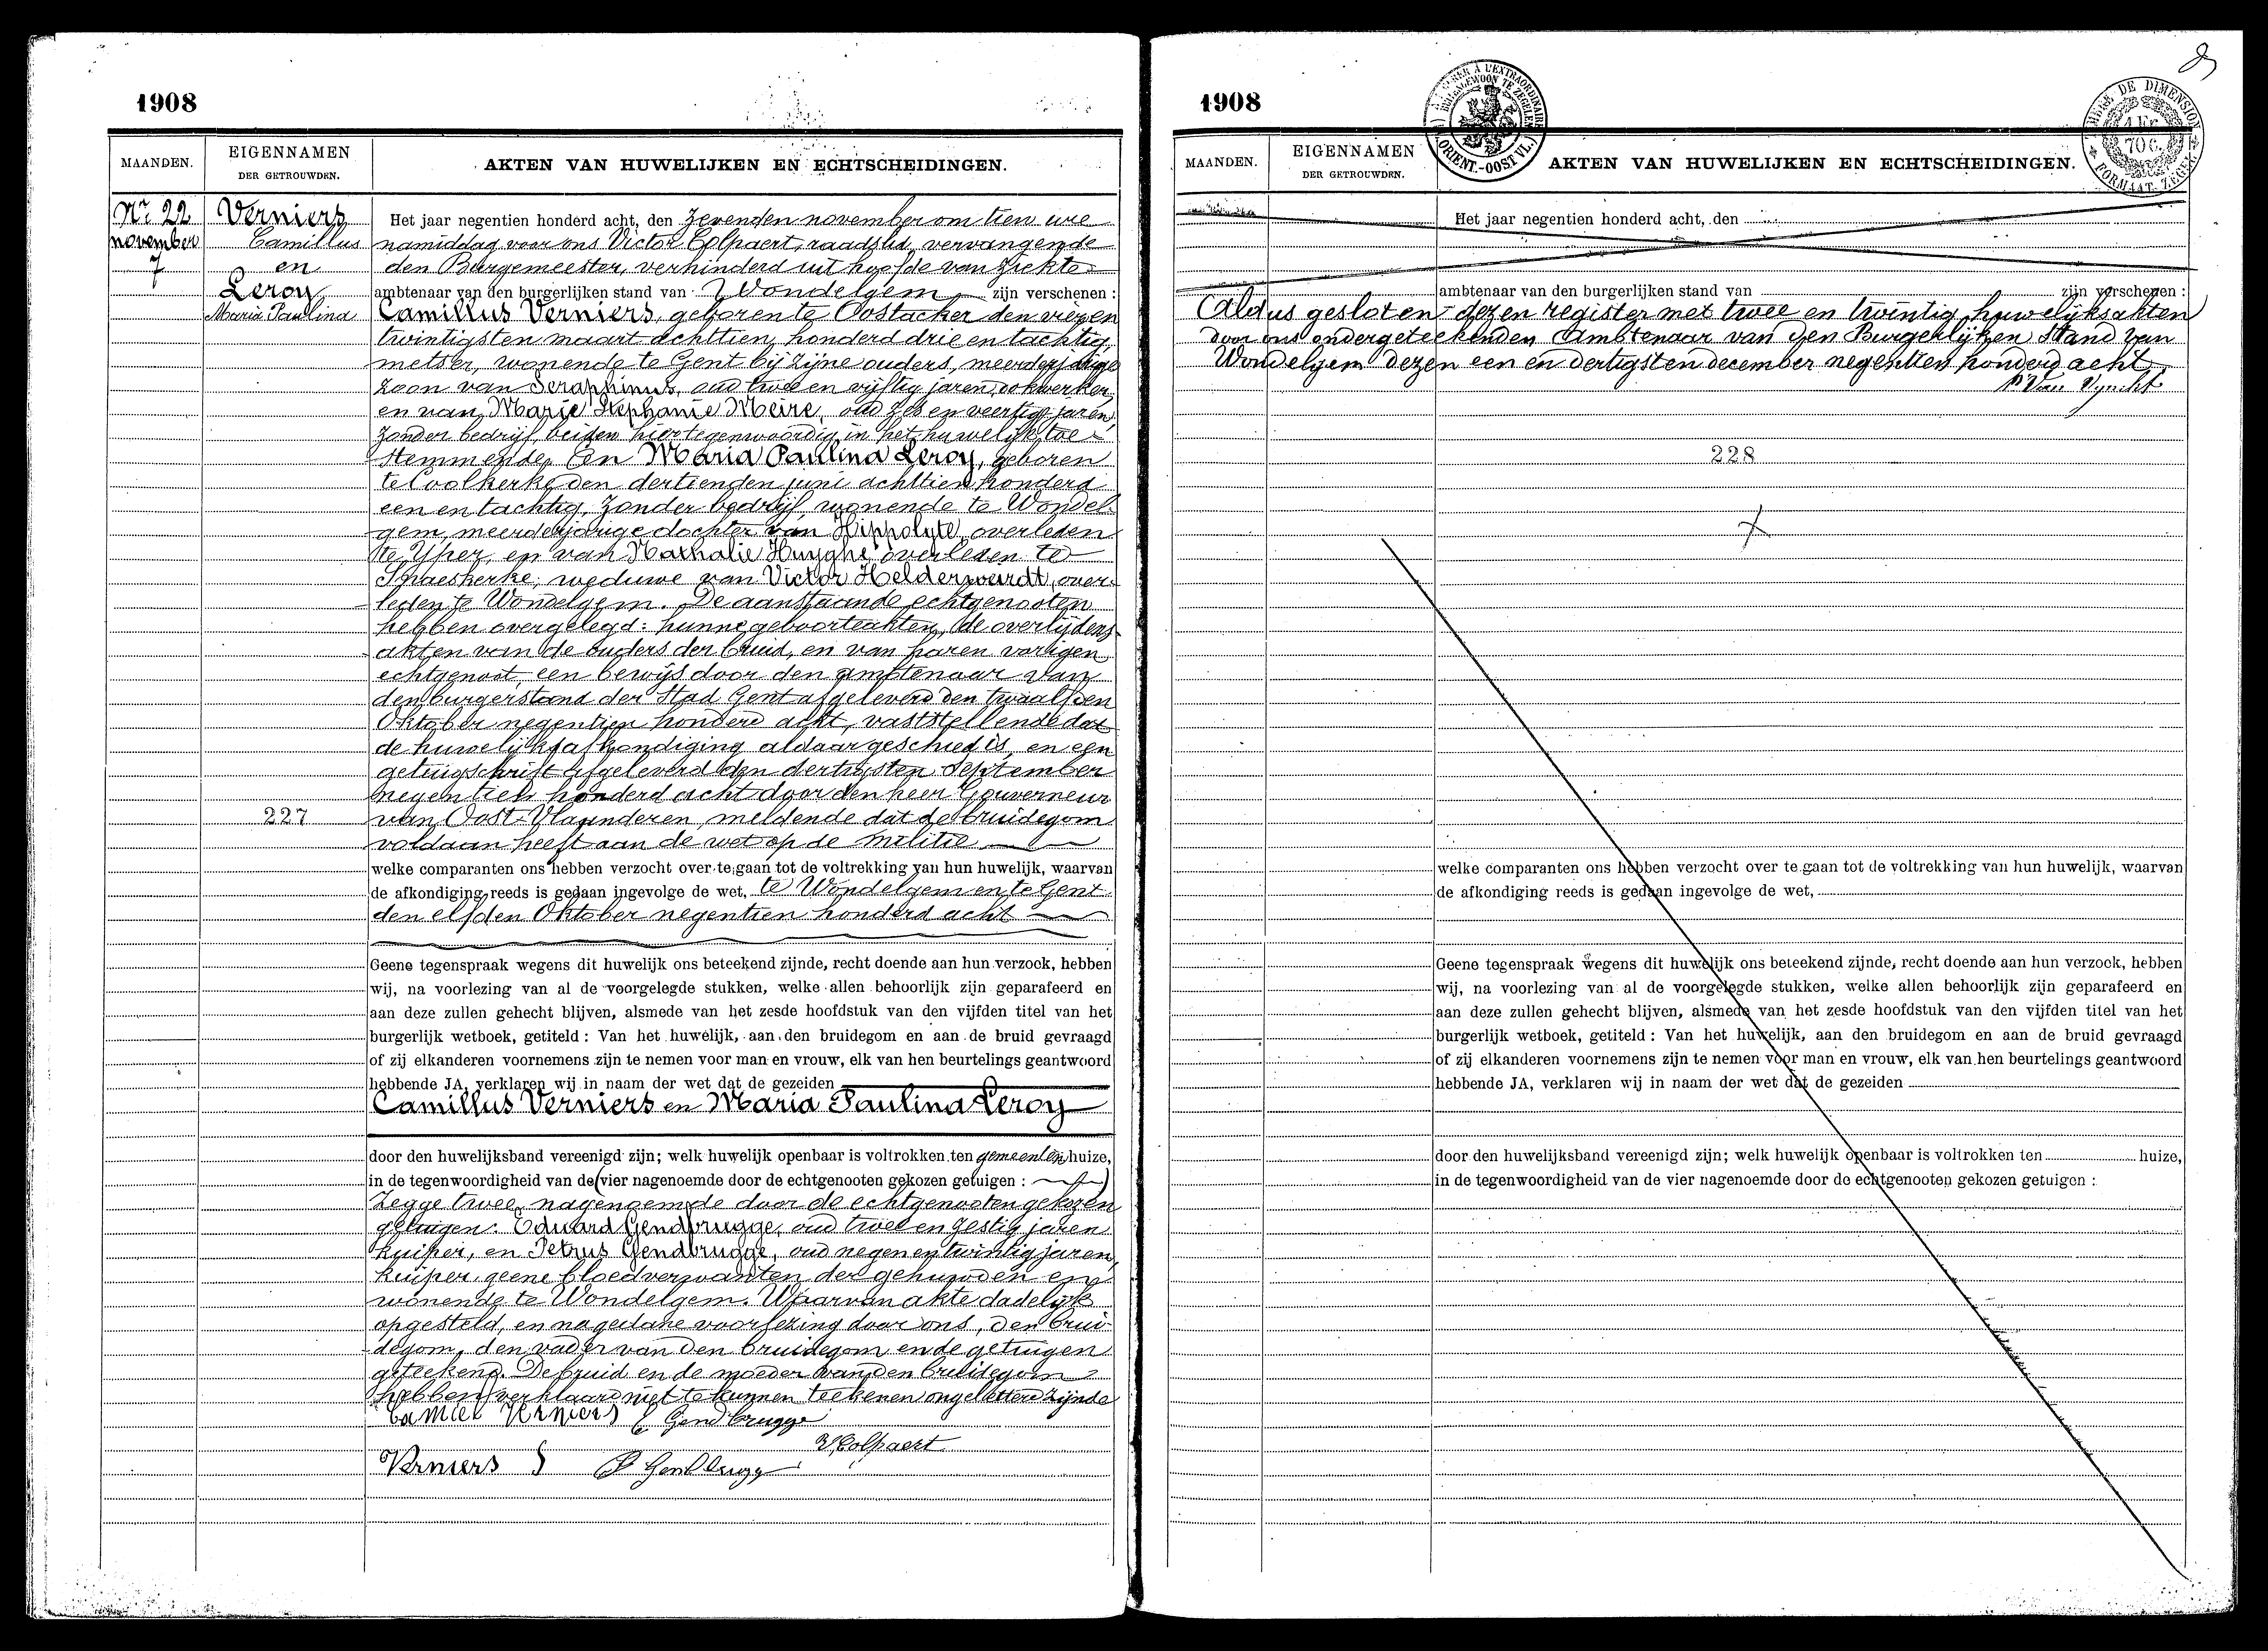 1908
MAANDEN.
EIGENNAMEN
DER GETROUWDEN.
AKTEN VAN HUWELIJKEN EN ECHTSCHEIDINGEN.
Nr 22
november
7
Verniers
Camillus
en
Leroy
Maria Paulina
227
Het jaar negentien honderd acht, den zevenden november om tien ure
namiddag voor ons Victor Colpaert, raadslid, vervangende
den Burgemeester, verhinderd uit hoofde van ziekte
ambtenaar van den burgerlijken stand van Wondelgem zijn verschenen :
Camillus Verniers, geboren te Oostacker den vier en
twintigsten maart achttien honderd drie en tachtig,
metser, wonende te Gent bij zijne ouders, meerderjarige
zoon van Seraphinus, oud twee en vijftig jaren,
en van Marie Stephanie Meire, oud zes en veertig jaren,
zonder bedrijf, beiden hier tegenwoordig in het huwelijk toe
stemmende, En Maria Paulina Leroy, geboren
te Coolkerke den dertienden juni achttien honderd
een en tachtig, zonder bedrijf, wonende te Wondel-
gem, meerderjarige dochter van Hippolyte, overleden
te Yper, en van Nathalie Huyghe, overleden te
weduwe van Victor Helderweirdt, over-
leden te Wondelgem. De aanstaande echtgenooten
hebben overgelegd: hunne geboorteakten, de overlijdens
akten van de ouders der bruid, en van haren vorigen
echtgenoot, een bewijs door den ambtenaar van
den burgerstand der Stad Gent afgeleverd den twaalfden
Oktober negentien honderd acht, vaststellende dat
de huwelijksafkondiging aldaar geschied is, en een
getuigschrift afgeleverd den dertigsten September
negentien honderd acht door den heer Gouverneur
van Oost-Vlaanderen, meldende dat de bruidegom
voldaan heeft aan de wet op de militie
welke comparanten ons hebben verzocht over te gaan tot de voltrekking van hun huwelijk, waarvan
de afkondiging reeds is gedaan ingevolge de wet, te Wondelgem en te Gent
den elfden Oktober negentien honderd acht
Geene tegenspraak wegens dit huwelijk ons beteekend zijnde, recht doende aan hun verzoek, hebben
wij, na voorlezing van al de voorgelegde stukken, welke allen behoorlijk zijn geparafeerd en
aan deze zullen gehecht blijven, alsmede van het zesde hoofdstuk van den vijfden titel van het
burgerlijk wetboek, getiteld : Van het huwelijk, aan den bruidegom en aan de bruid gevraagd
of zij elkanderen voornemens zijn te nemen voor man en vrouw, elk van hen beurtelings geantwoord
hebbende JA, verklaren wij in naam der wet dat de gezeiden
Camillus Verniers en Maria Paulina Leroy
door den huwelijksband vereenigd zijn; welk huwelijk openbaar is voltrokken ten gemeenten huize,
in de tegenwoordigheid van de (vier nagenoemde door de echtgenooten gekozen getuigen : )
Zegge twee, nagenoemde door de echtgenooten gekozen
getuigen: Eduard Gendbrugge, oud twee en zestig jaren
kuiper, en Petrus Gendbrugge, oud negen en twintig jaren,
kuiper, geene bloedverwanten der gehuwden en
wonende te Wondelgem. Waarvan akte dadelijk
opgesteld, en na gedane voorlezing door ons, den brui-
degom, den vader van den bruidegom en de getuigen
geteekend. De bruid en de moeder van den bruidegom
hebben verklaard niet te kunnen teekenen ongeletterd zijnde
Camiel Verniers E Gendbrugge
V Colpaert
Verniers S P Gendbrugge
1908
MAANDEN.
EIGENNAMEN
DER GETROUWDEN.
AKTEN VAN HUWELIJKEN EN ECHTSCHEIDINGEN.
Het jaar negentien honderd acht, den
ambtenaar van den burgerlijken stand van zijn verschenen :
Aldus gesloten dezen register met twee en twintig huwelijksakten
door ons ondergeteekenden Ambtenaar van den Burgerlijken Stand van
Wondelgem dezen een en dertigsten december negentien honderd acht
228
welke comparanten ons hebben verzocht over te gaan tot de voltrekking van hun huwelijk, waarvan
de afkondiging reeds is gedaan ingevolge de wet,
Geene tegenspraak wegens dit huwelijk ons beteekend zijnde, recht doende aan hun verzoek, hebben
wij, na voorlezing van al de voorgelegde stukken, welke allen behoorlijk zijn geparafeerd en
aan deze zullen gehecht blijven, alsmede van het zesde hoofdstuk van den vijfden titel van het
burgerlijk wetboek, getiteld : Van het huwelijk, aan den bruidegom en aan de bruid gevraagd
of zij elkanderen voornemens zijn te nemen voor man en vrouw, elk van hen beurtelings geantwoord
hebbende JA, verklaren wij in naam der wet dat de gezeiden
door den huwelijksband vereenigd zijn; welk huwelijk openbaar is voltrokken ten huize,
in de tegenwoordigheid van de vier nagenoemde door de echtgenooten gekozen getuigen :